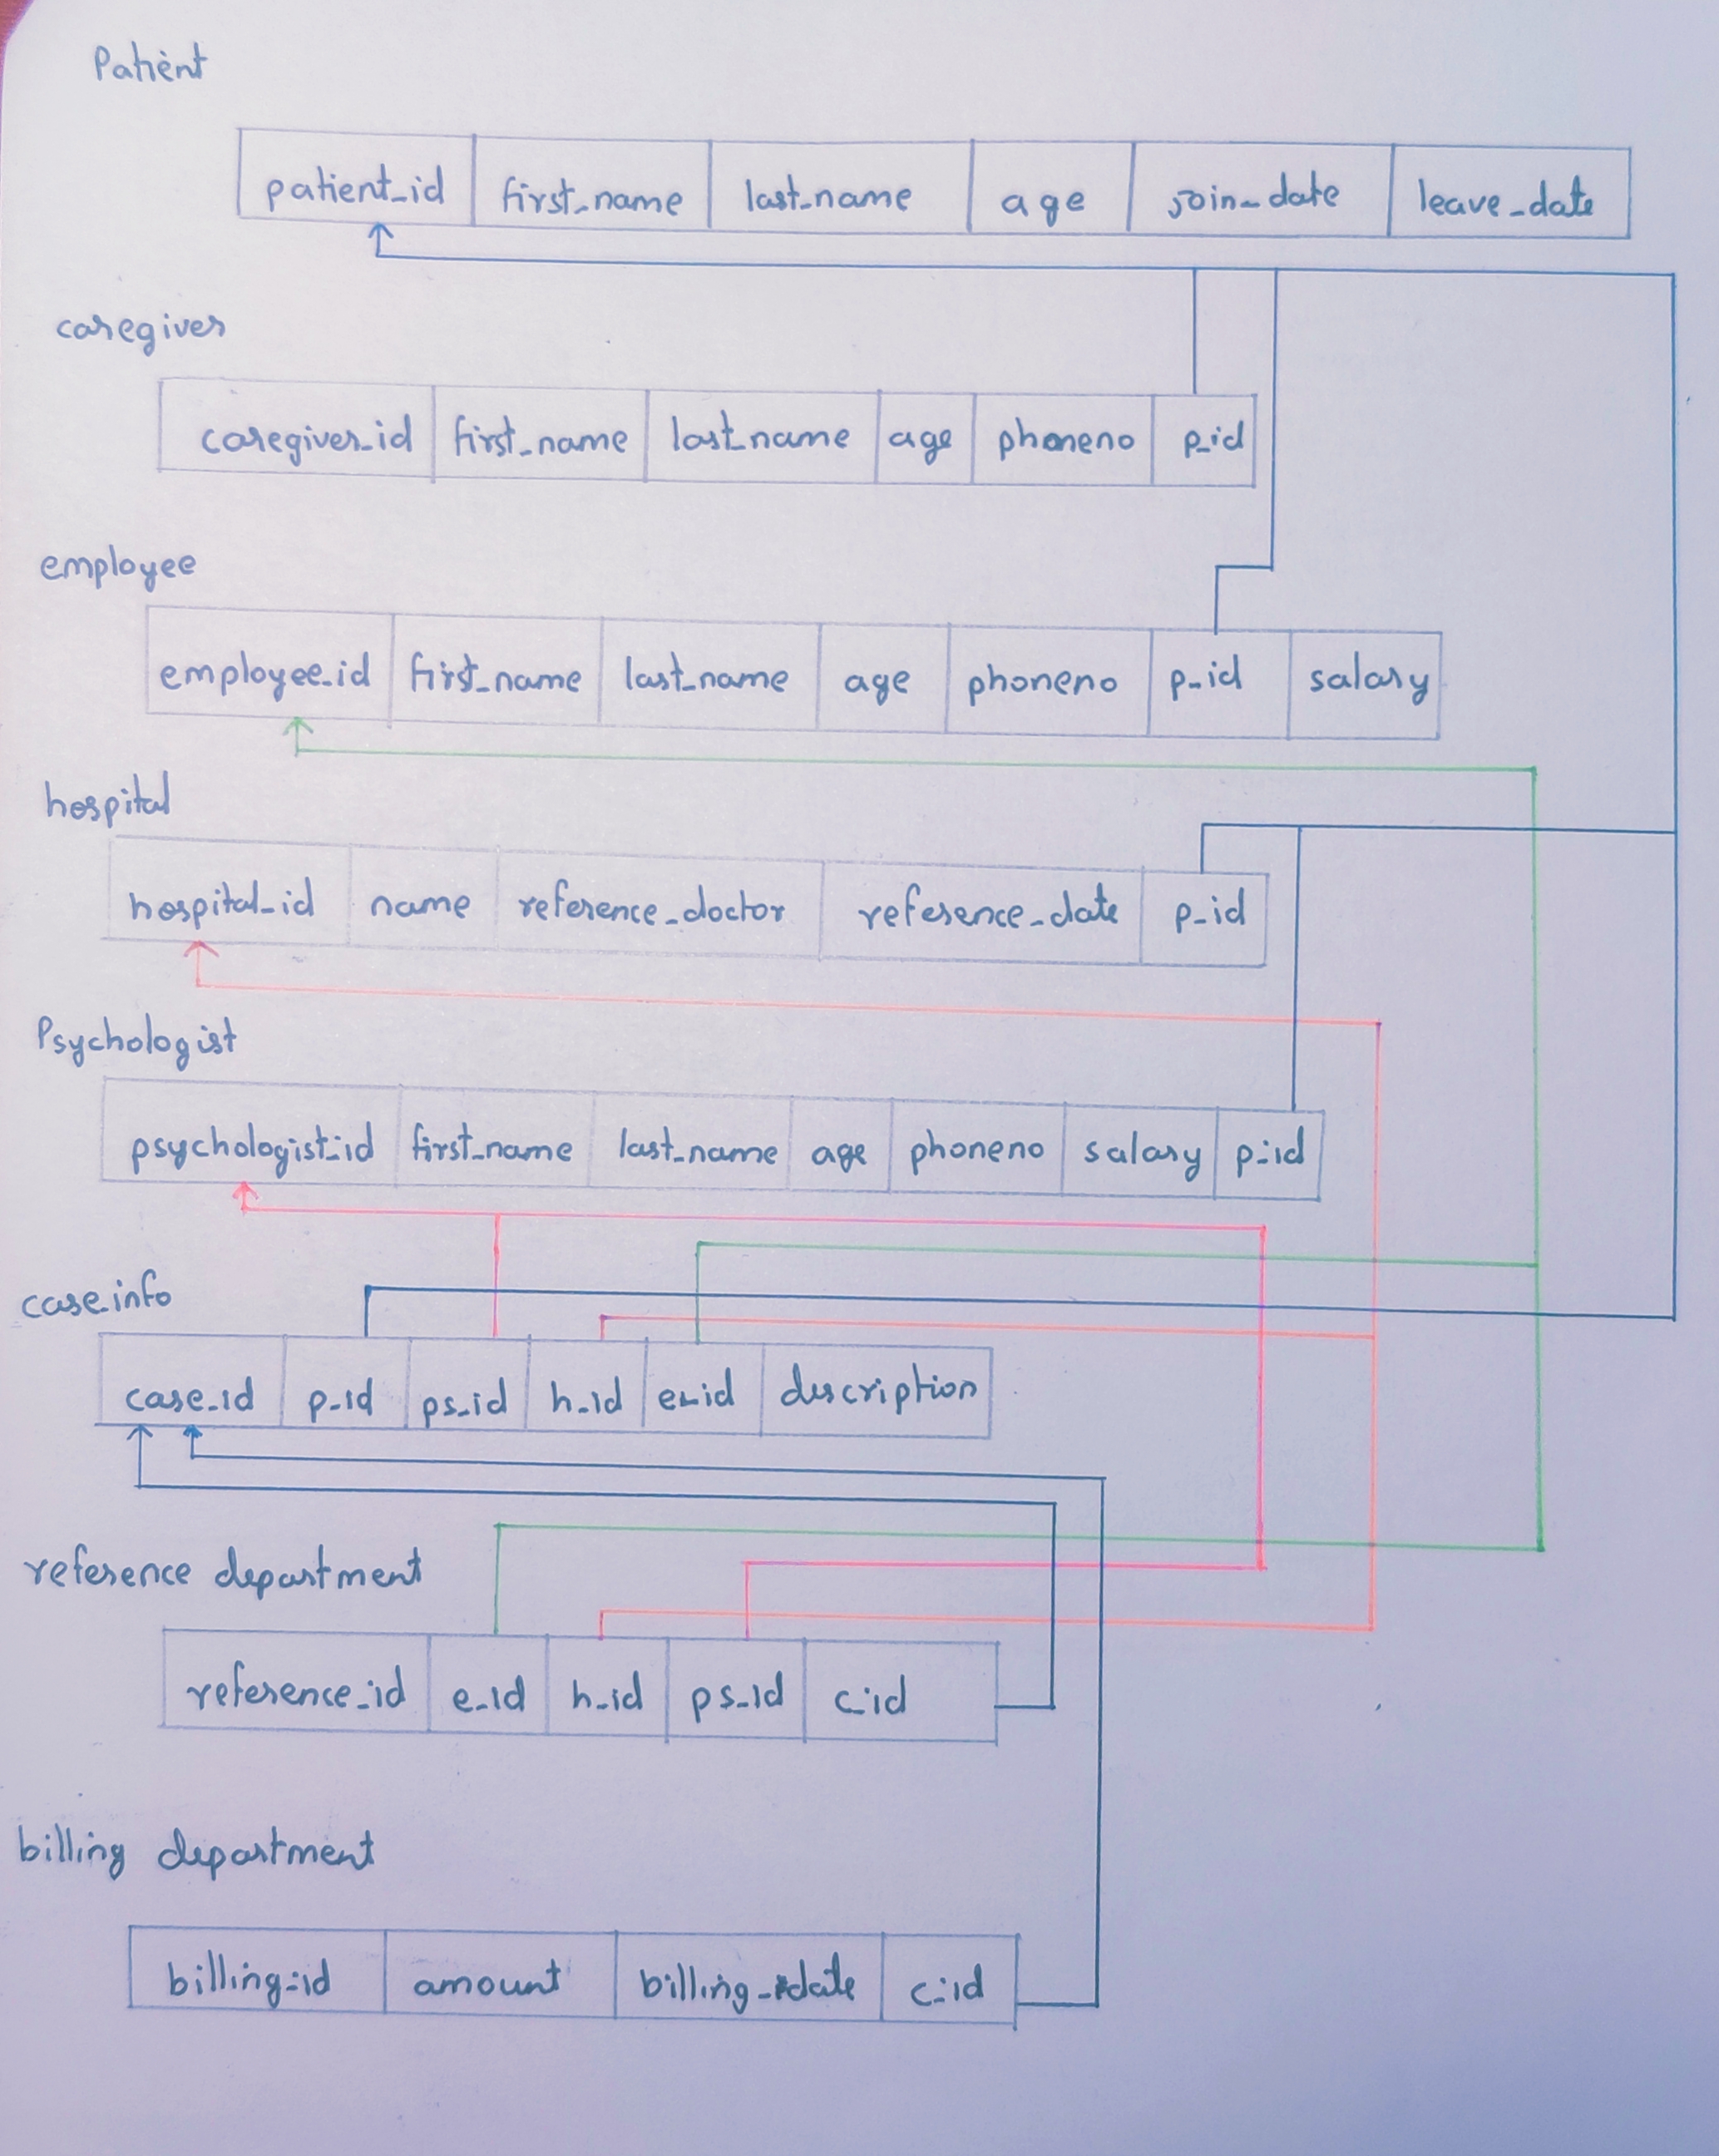 Patient
patient_id first_name last_name age join_date leave_date
caregiver
caregiver_id first_name last_name age phoneno p_id
employee
employee_id first_name last_name age phoneno p_id salary
hospital
hospital_id name reference_doctor reference_date p_id
Psychologist
psychologist_id first_name last_name age phoneno salary p_id
case_info
case_id p_id ps_id h_id e_id description
reference department
reference_id e_id h_id ps_id c_id
billing department
billing_id amount billing_date c_id